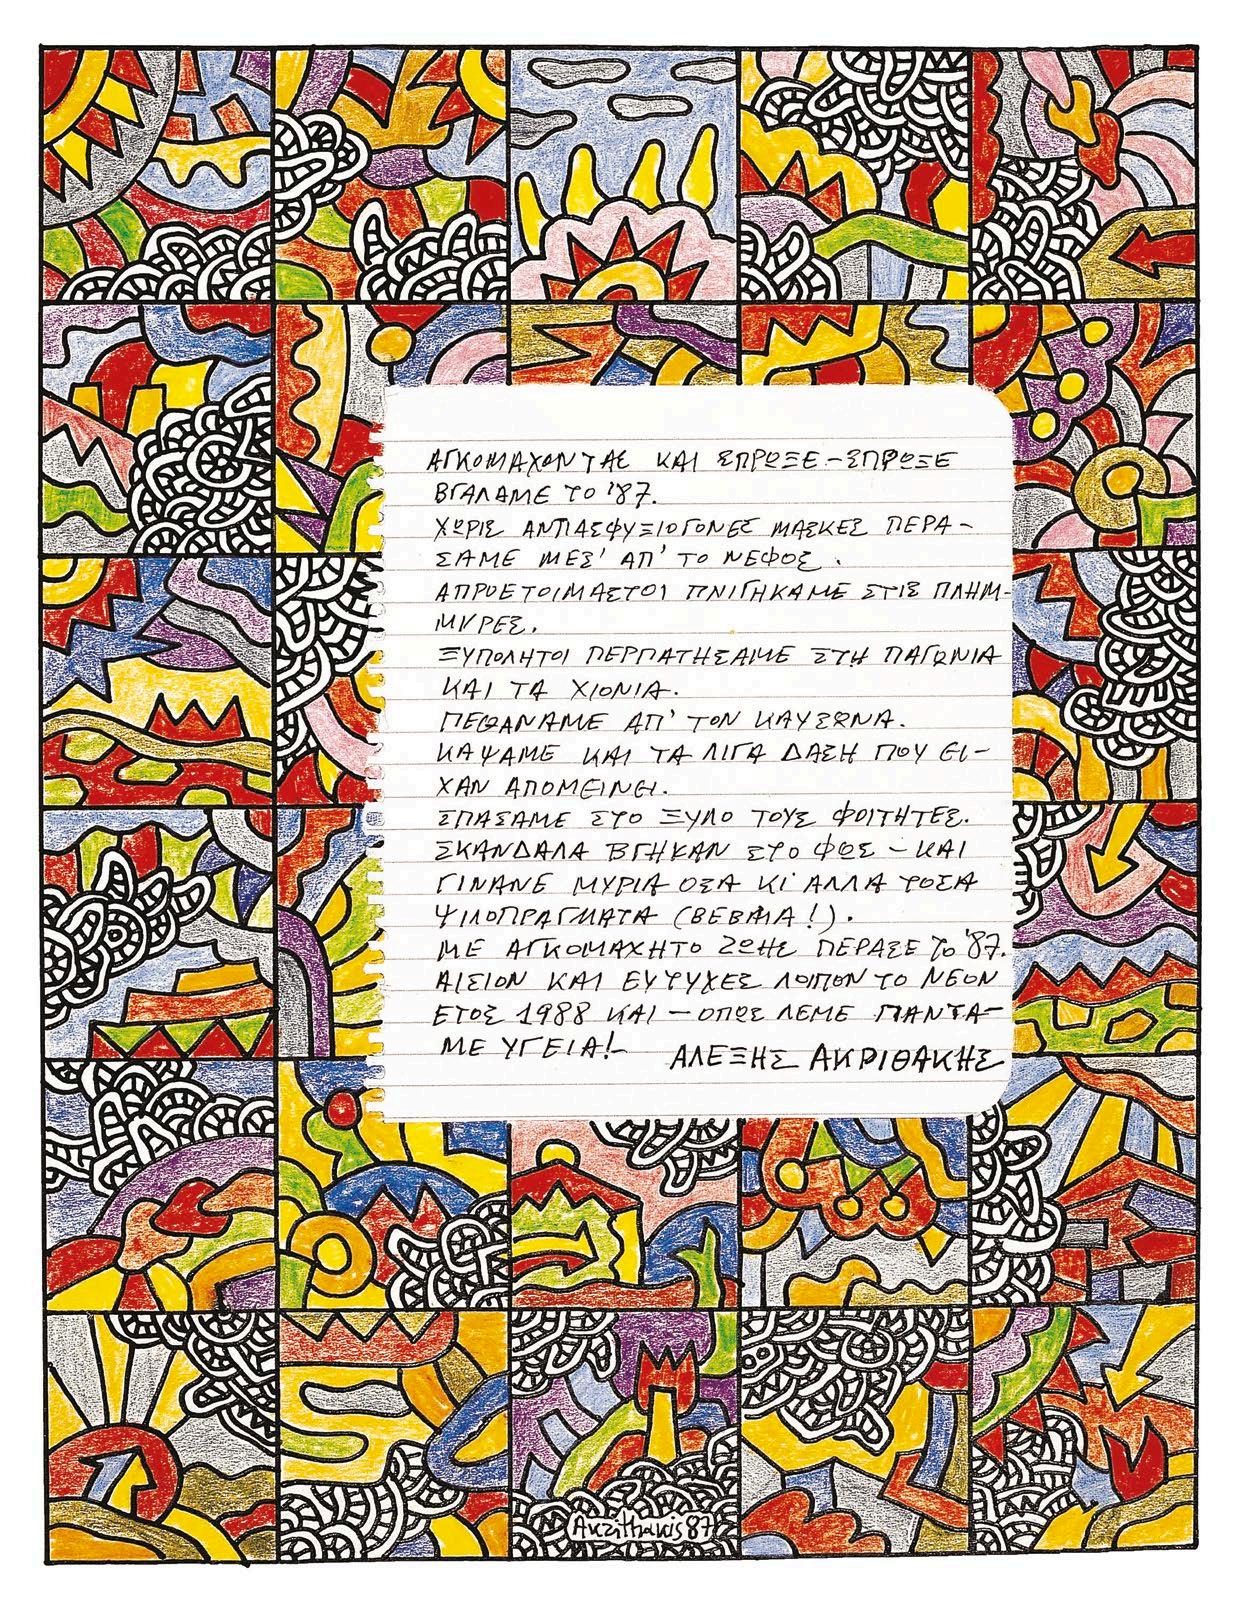 ΑΓΚΟΜΑΧΟΝΤΑΣ ΚΑΙ ΣΠΡΩΞΕ-ΣΠΡΩΞΕ
ΒΓΑΛΑΜΕ ΤΟ '87.
ΧΩΡΙΣ ΑΝΤΙΑΣΦΥΞΙΟΓΟΝΕΣ ΜΑΣΚΕΣ ΠΕΡΑ-
ΣΑΜΕ ΜΕΣ' ΑΠ' ΤΟ ΝΕΦΟΣ.
ΑΠΡΟΕΤΟΙΜΑΣΤΟΙ ΠΝΙΓΗΚΑΜΕ ΣΤΙΣ ΠΛΗΜ-
ΜΥΡΕΣ.
ΞΥΠΟΛΗΤΟΙ ΠΕΡΠΑΤΗΣΑΜΕ ΣΤΗ ΠΑΓΩΝΙΑ
ΚΑΙ ΤΑ ΧΙΟΝΙΑ.
ΠΕΘΑΝΑΜΕ ΑΠ' ΤΟΝ ΚΑΥΣΩΝΑ.
ΚΑΨΑΜΕ ΚΑΙ ΤΑ ΛΙΓΑ ΔΑΣΗ ΠΟΥ ΕΙ-
ΧΑΝ ΑΠΟΜΕΙΝΕΙ.
ΣΠΑΣΑΜΕ ΣΤΟ ΞΥΛΟ ΤΟΥΣ ΦΟΙΤΗΤΕΣ.
ΣΚΑΝΔΑΛΑ ΒΓΗΚΑΝ ΣΤΟ ΦΩΣ - ΚΑΙ
ΓΙΝΑΝΕ ΜΥΡΙΑ ΟΣΑ ΚΙ ΑΛΛΑ ΤΟΣΑ
ΨΙΛΟΠΡΑΓΜΑΤΑ (ΒΕΒΑΙΑ!).
ΜΕ ΑΓΚΟΜΑΧΗΤΟ ΖΩΗΣ ΠΕΡΑΣΕ ΤΟ '87.
ΑΙΣΙΟΝ ΚΑΙ ΕΥΤΥΧΕΣ ΛΟΙΠΟΝ ΤΟ ΝΕΟΝ
ΕΤΟΣ 1988 ΚΑΙ - ΟΠΩΣ ΛΕΜΕ ΠΑΝΤΑ-
ΜΕ ΥΓΕΙΑ!-
ΑΛΕΞΗΣ ΑΚΡΙΘΑΚΗΣ
Akrithakis 87